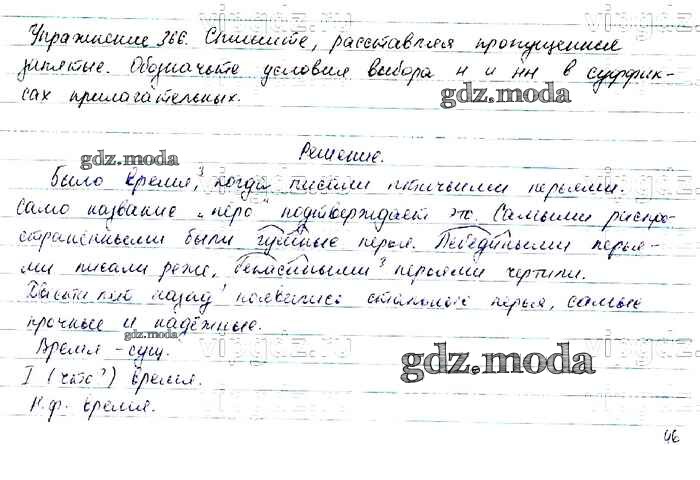 Упражнение 366. Спишите, расставляя пропущенные
запятые. Обозначьте условия выбора н и нн в суффик-
сах прилагательных.
Решение.
Было время,³ когда писали птичьими перьями.
Само название „перо“ подтверждает это. Самыми распро-
страненными были гусиные перья. Лебедиными перья-
ми писали реже, бекасиными³ перьями чертили.
лет назад появились стальные перья, самые
прочные и надёжные.
Время - сущ.
I (что?) время.
Н.ф. время.
46
gdz.moda
gdz.moda
gdz.moda
gdz.moda
vipgdz.ru
vipgdz.ru
vipgdz.ru
vipgdz.ru